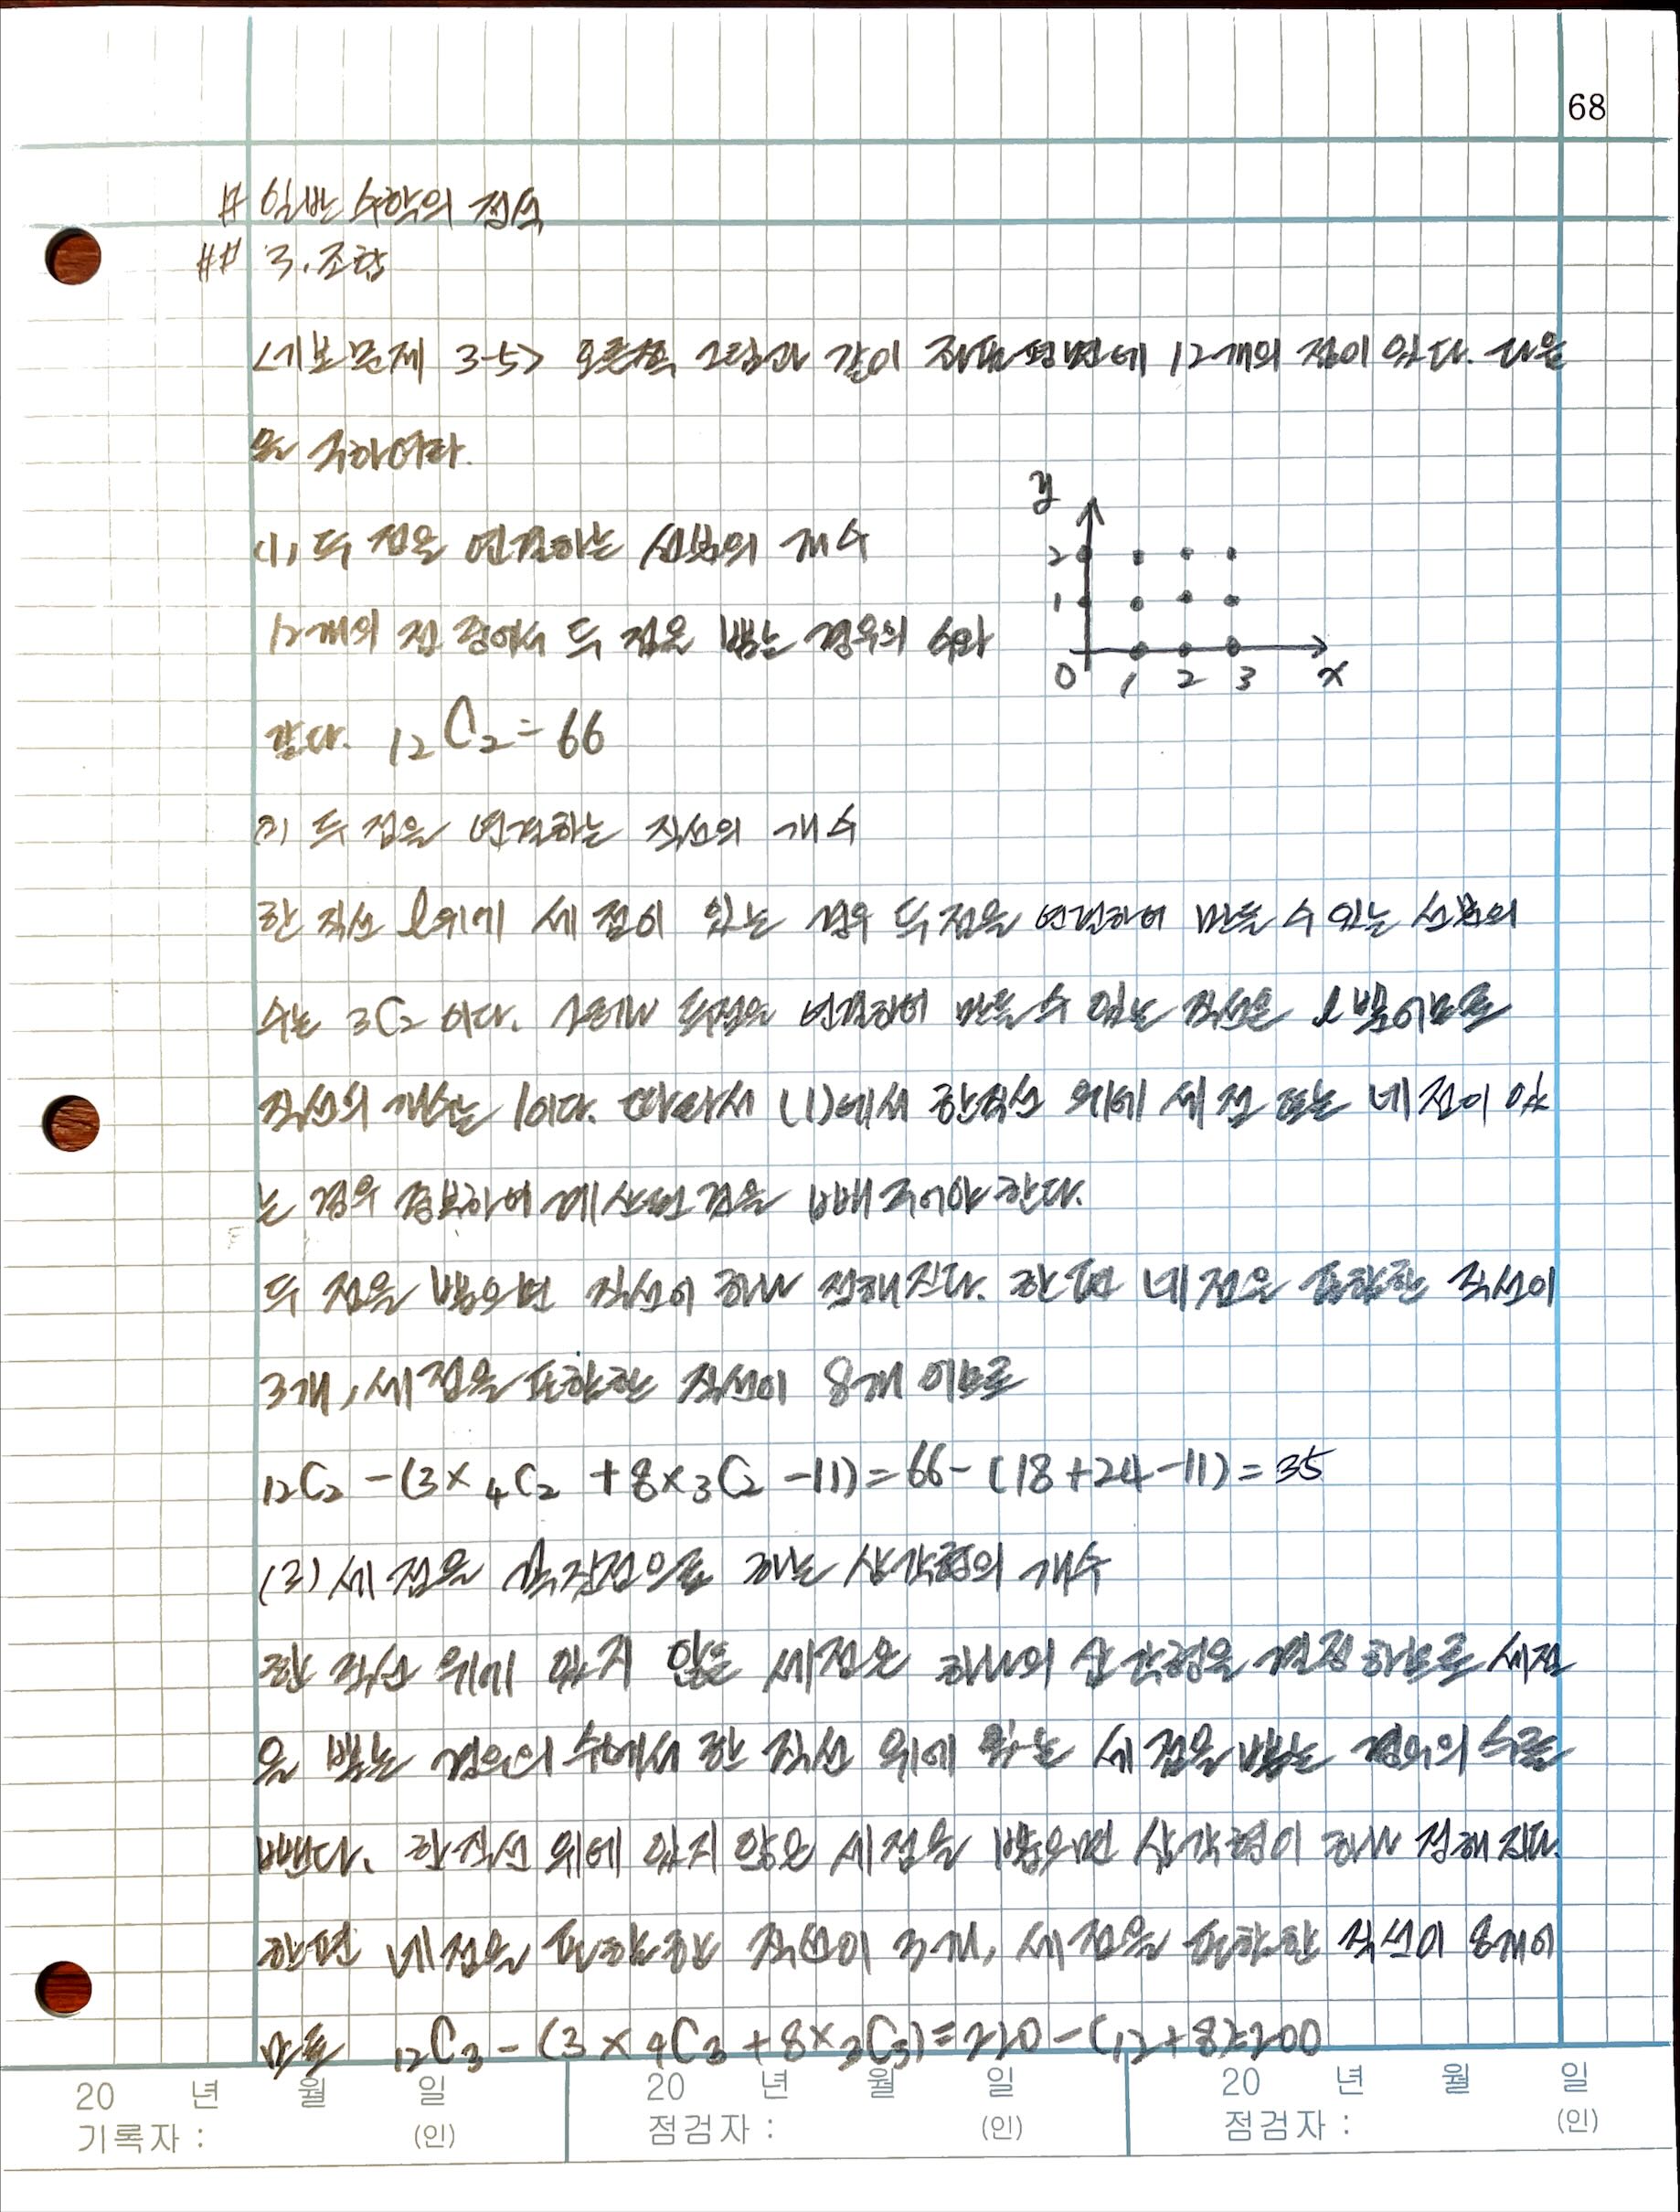 68
# 일반 수학의 정석
## 3. 조합
<기본문제 3-5> 오른쪽 그림과 같이 좌표평면에 12개의 점이 있다. 다음
을 구하여라.
(1) 두 점을 연결하는 선분의 개수
12개의 점 중에서 두 점을 뽑는 경우의 수와
같다. 12C2 = 66
y
2
1
0 1 2 3 x
(2) 두 점을 연결하는 직선의 개수
한 직선 l위에 세 점이 있는 경우 두 점을 연결하여 만들 수 있는 선분의
수는 3C2 이다. 그러나 두점을 연결하여 만들 수 있는 직선은 l 뿐이므로
직선의 개수는 1이다. 따라서 (1)에서 한직선 위에 세 점 또는 네 점이 있
는 경우 중복하여 계산된 것을 빼 주어야 한다.
두 점을 뽑으면 직선이 하나 정해진다. 한편 네 점을 포함한 직선이
3개, 세 점을 포함한 직선이 8개 이므로
12C2 - (3× 4C2 + 8×3C2 -11) = 66 - (18+24-11) = 35
(3) 세 점을 꼭짓점으로 하는 삼각형의 개수
한 직선 위에 있지 않은 세 점은 하나의 삼각형을 결정하므로 세점
을 뽑는 경우의 수에서 한 직선 위에 있는 세 점을 뽑는 경우의 수를
뺀다. 한직선 위에 있지 않은 세 점을 뽑으면 삼각형이 하나 정해진다.
한편 네 점을 포함한 직선이 3개, 세 점을 포함한 직선이 8개이
므로 12C3 - (3 × 4C3 + 8×3C3) = 220 - (12+8)=200
20 년 월 일 20 년 월 일 20 년 월 일
기록자 : (인) 점검자 : (인) 점검자 : (인)